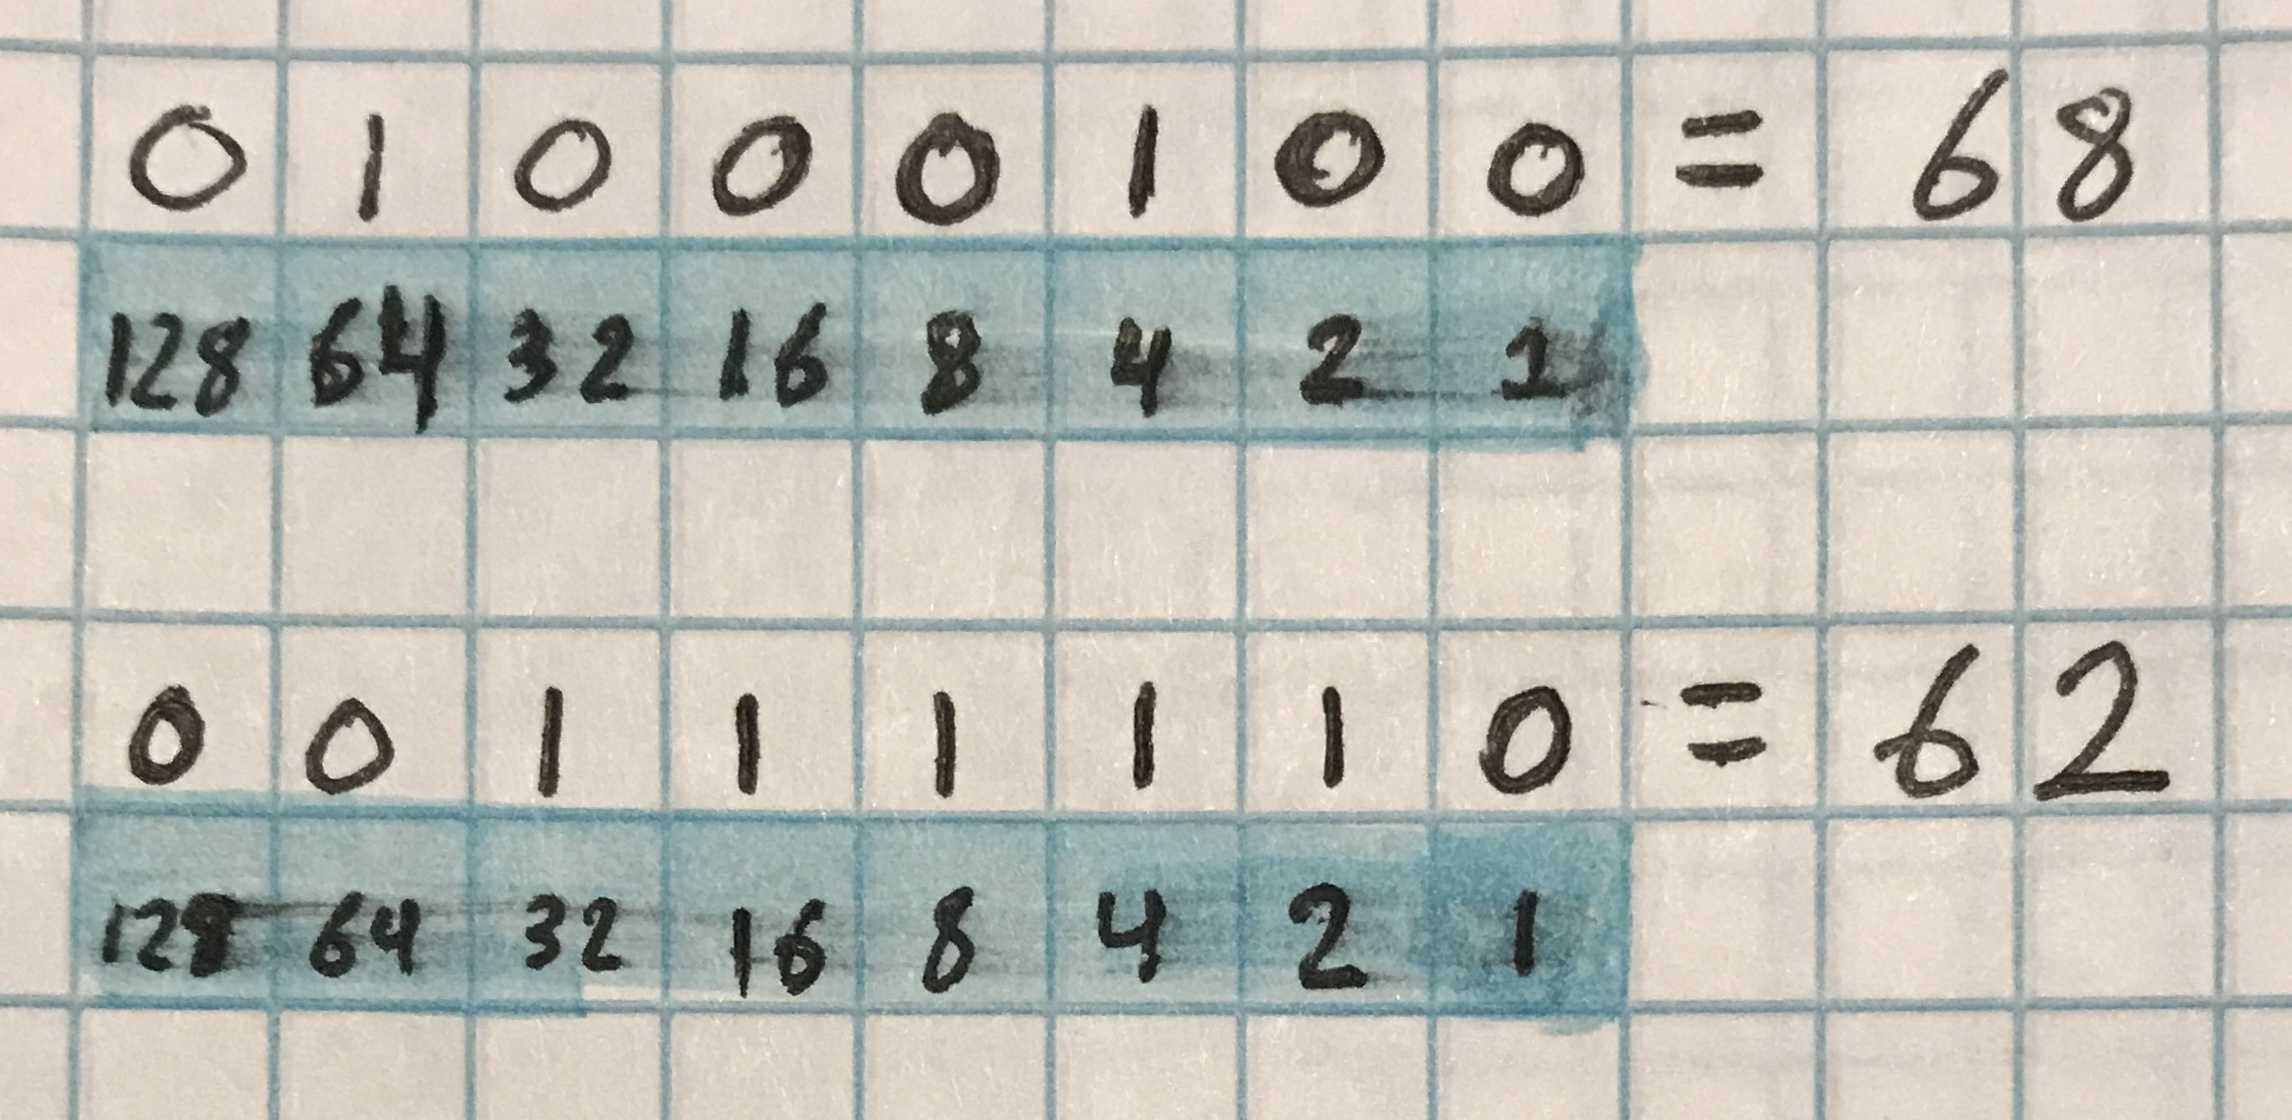 0 1 0 0 0 1 0 0 = 68
128 64 32 16 8 4 2 1
0 0 1 1 1 1 1 0 = 62
128 64 32 16 8 4 2 1